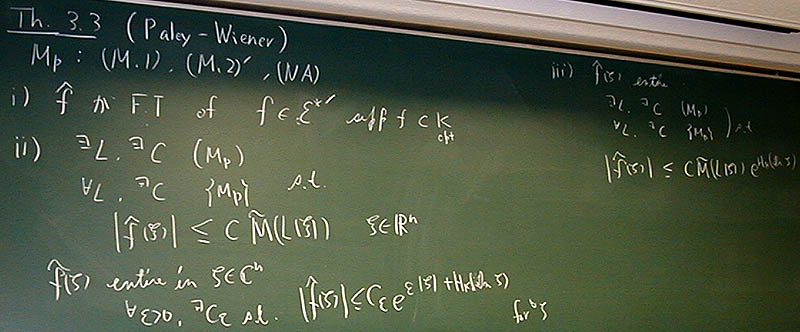 Th. 3.3 (Paley-Wiener)
Mp : (M.1), (M.2)′, (NA)
i) f̂ が F.T of f ∈ ℰ*′ supp f ⊂ K
cpt
ii) ∃L, ∃C (Mp)
∀L, ∃C {Mp} s.t.
|f̂(ξ)| ≤ C M̃(L|ξ|) ξ∈ℝⁿ
f̂(ζ) entire in ζ∈ℂⁿ
∀ε>0, ∃Cε s.t. |f̂(ζ)| ≤ Cε e^{ε|ζ| + H_K(Im ζ)}
for ∀ζ
iii) f̂(ζ) entire
∃L, ∃C (Mp)
∀L, ∃C {Mp} ) s.t
|f̂(ζ)| ≤ C M̃(L|ζ|) e^{H_K(Im ζ)}